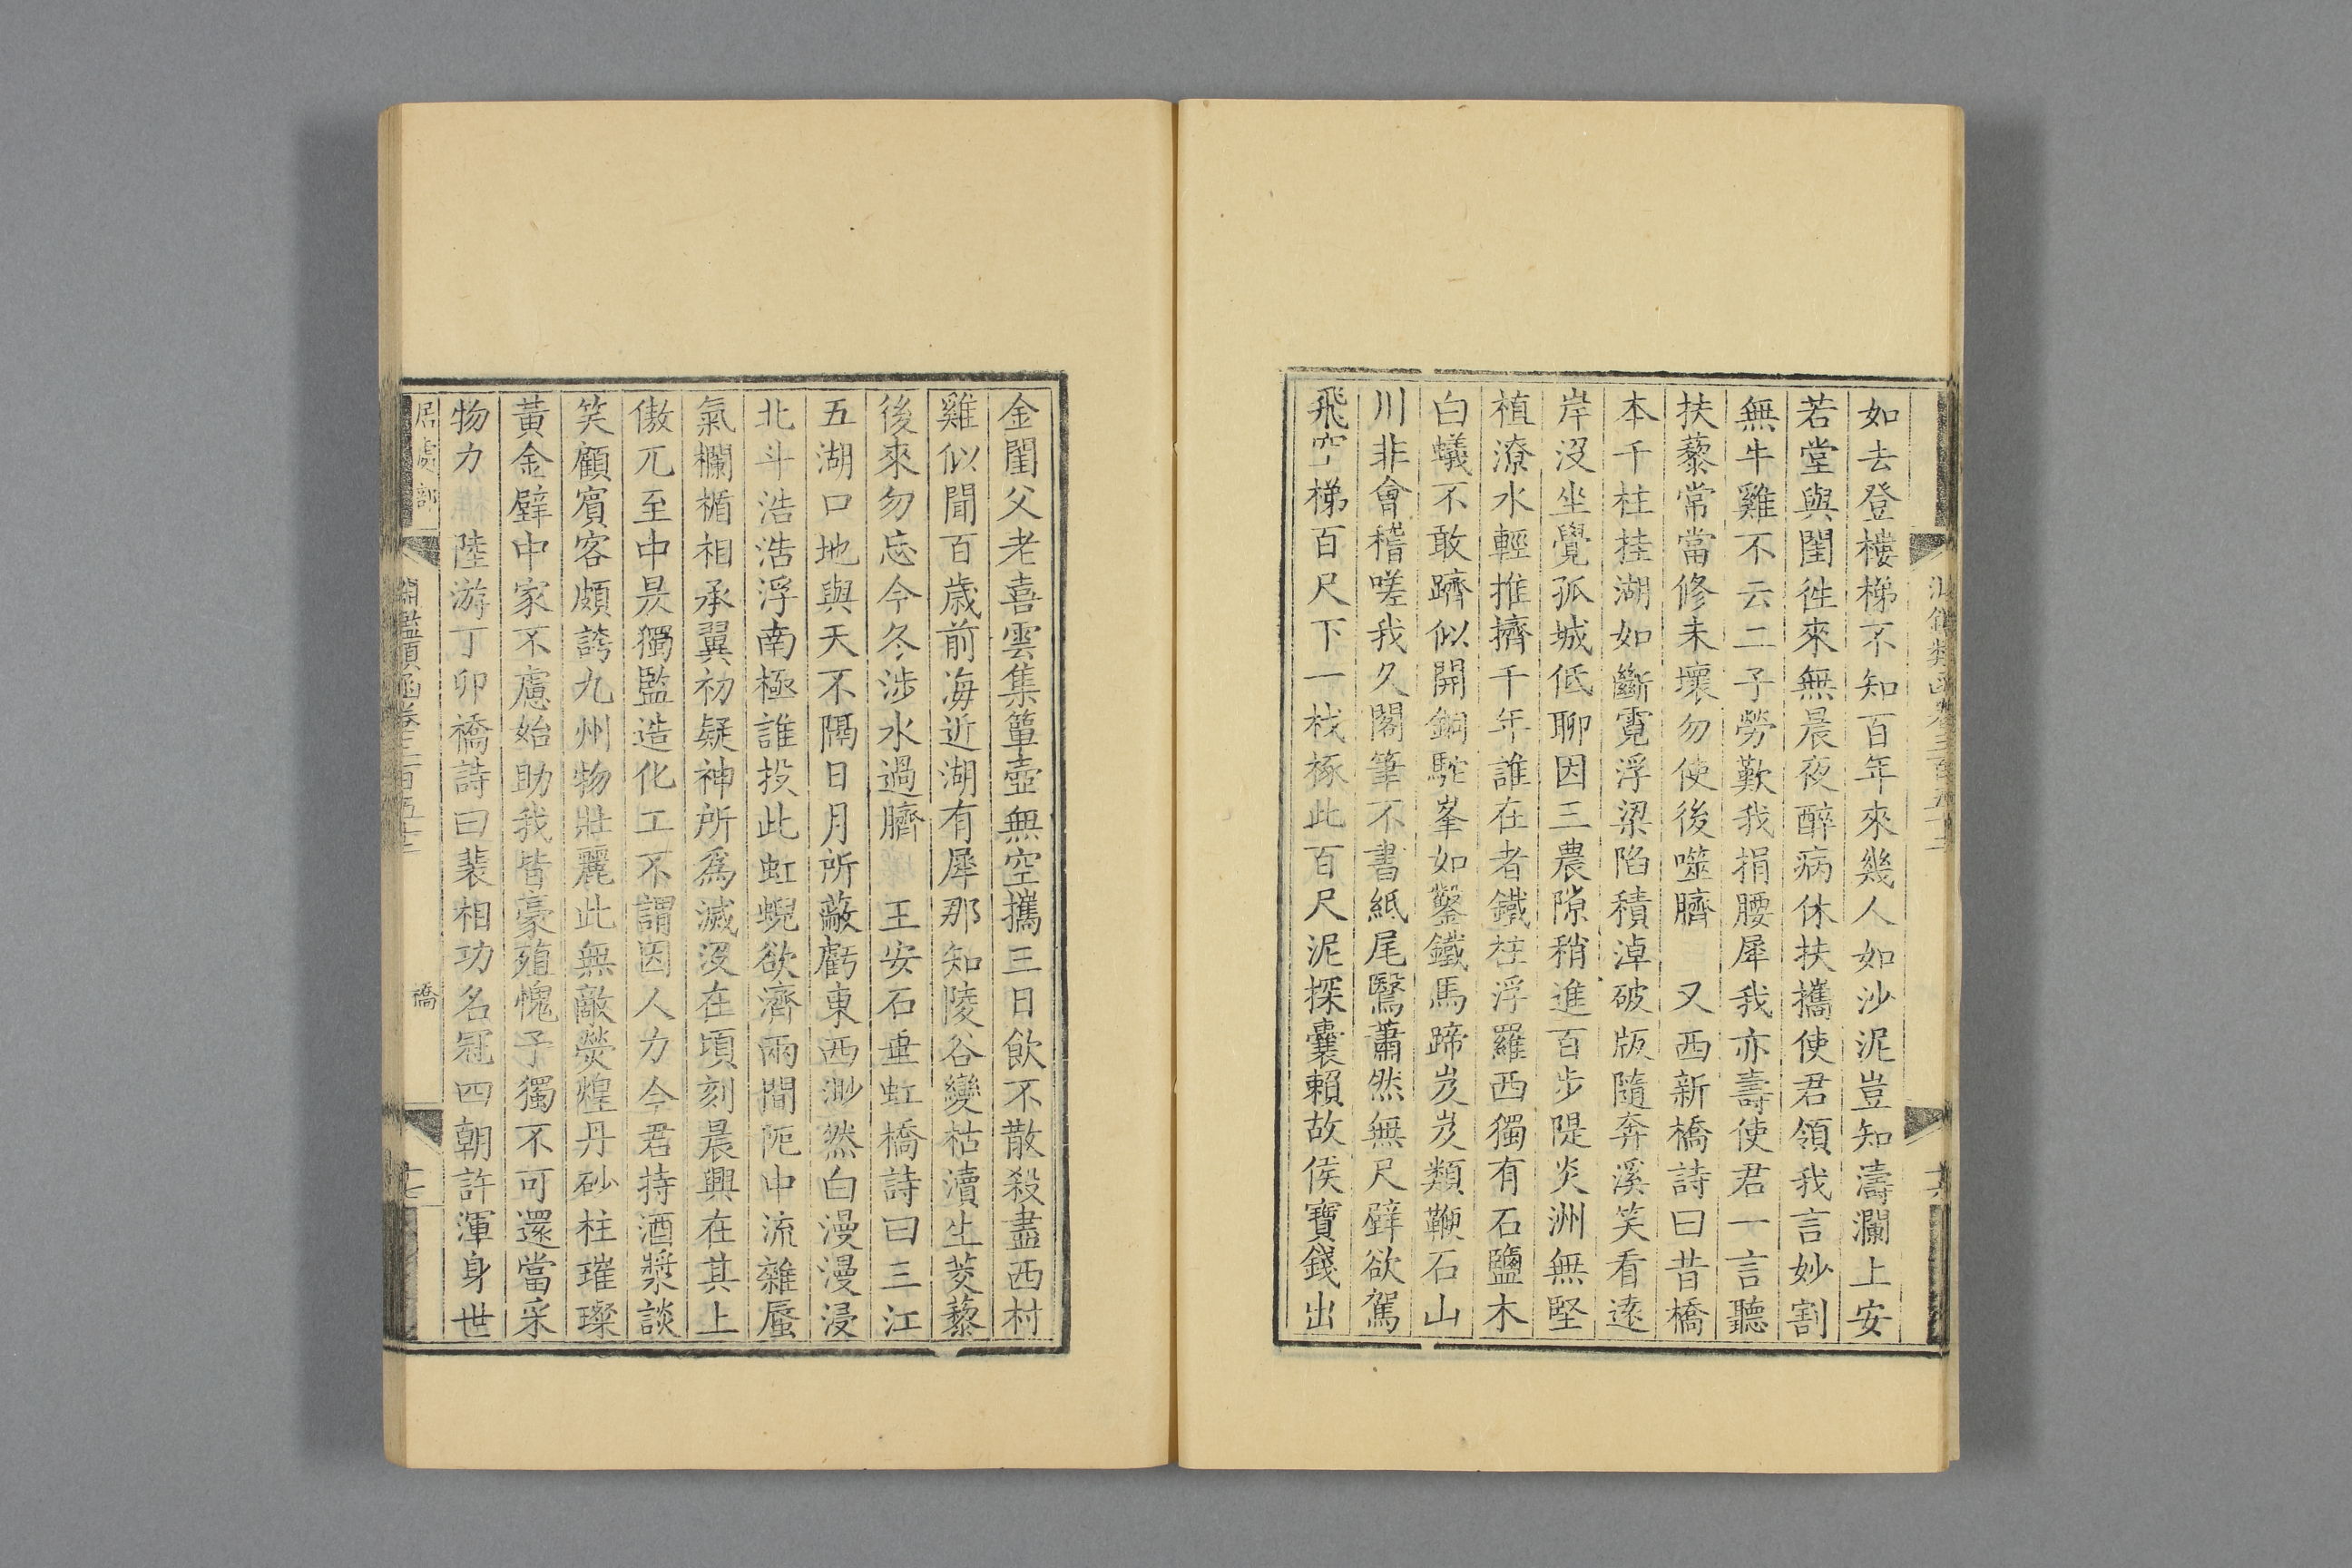 如去登樓梯不知百年來幾人如沙泥豈知濤瀾上安
若堂與閨徃來無晨夜醉病休扶攜使君領我言妙割
無牛雞不云二子勞歎我捐腰犀我亦壽使君一言聽
扶藜常當修未壞勿使後噬臍 又西新橋詩曰昔橋
本千柱挂湖如斷霓浮梁陷積淖破版隨奔溪笑看遠
岸沒坐覺孤城低聊因三農隙稍進百步隄炎洲無堅
植潦水輕推擠千年誰在者鐵柱浮羅西獨有石鹽木
白蟻不敢躋似開銅駝峯如鑿鐵馬蹄岌岌類鞭石山
川非會稽嗟我久閣筆不書紙尾鷖蕭然無尺擘欲駕
飛空梯百尺下一杙椓此百尺泥探囊賴故侯寶錢出
金閨父老喜雲集簞壺無空攜三日飲不散殺盡西村
雞似聞百歲前海近湖有犀那知陵谷變枯瀆生茭藜
後來勿忘今冬涉水過臍 王安石垂虹橋詩曰三江
五湖口地與天不隔日月所蔽虧東西渺然白漫漫浸
北斗浩浩浮南極誰投此虹蜺欲濟兩間阨中流雜蜃
氣欄楯相承翼初疑神所爲滅沒在頃刻晨興在其上
傲兀至中昃獨監造化工不謂因人力今君持酒漿談
笑顧賓客頗誇九州物壯麗此無敵熒煌丹砂柱璀璨
黃金壁中家不慮始助我皆豪殖愧予獨不可還當采
物力 陸游丁卯橋詩曰裴相功名冠四朝許渾身世
居處部
淵鑑類函卷三百五十二
橋
十七